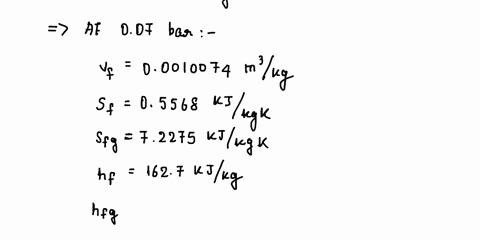 => At 0.07 bar:-
vf = 0.0010074 m³/kg
Sf = 0.5568 KJ/kgK
Sfg = 7.2275 KJ/kgK
hf = 162.7 KJ/kg
hfg